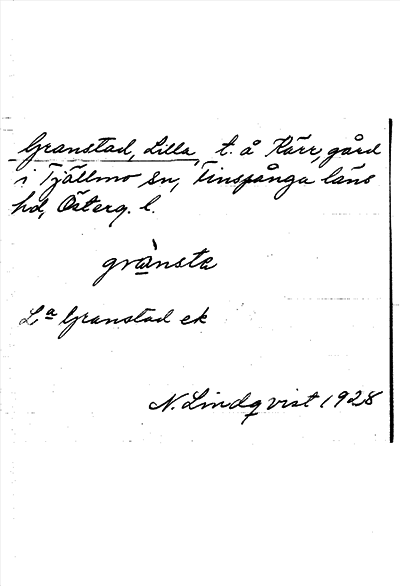 Granstad, Lilla, t. å Kärr, gård
i Tjällmo sn, Finspånga läns
hd, Österg. l.
grànsta
L:a Granstad ek
N. Lindqvist 1928